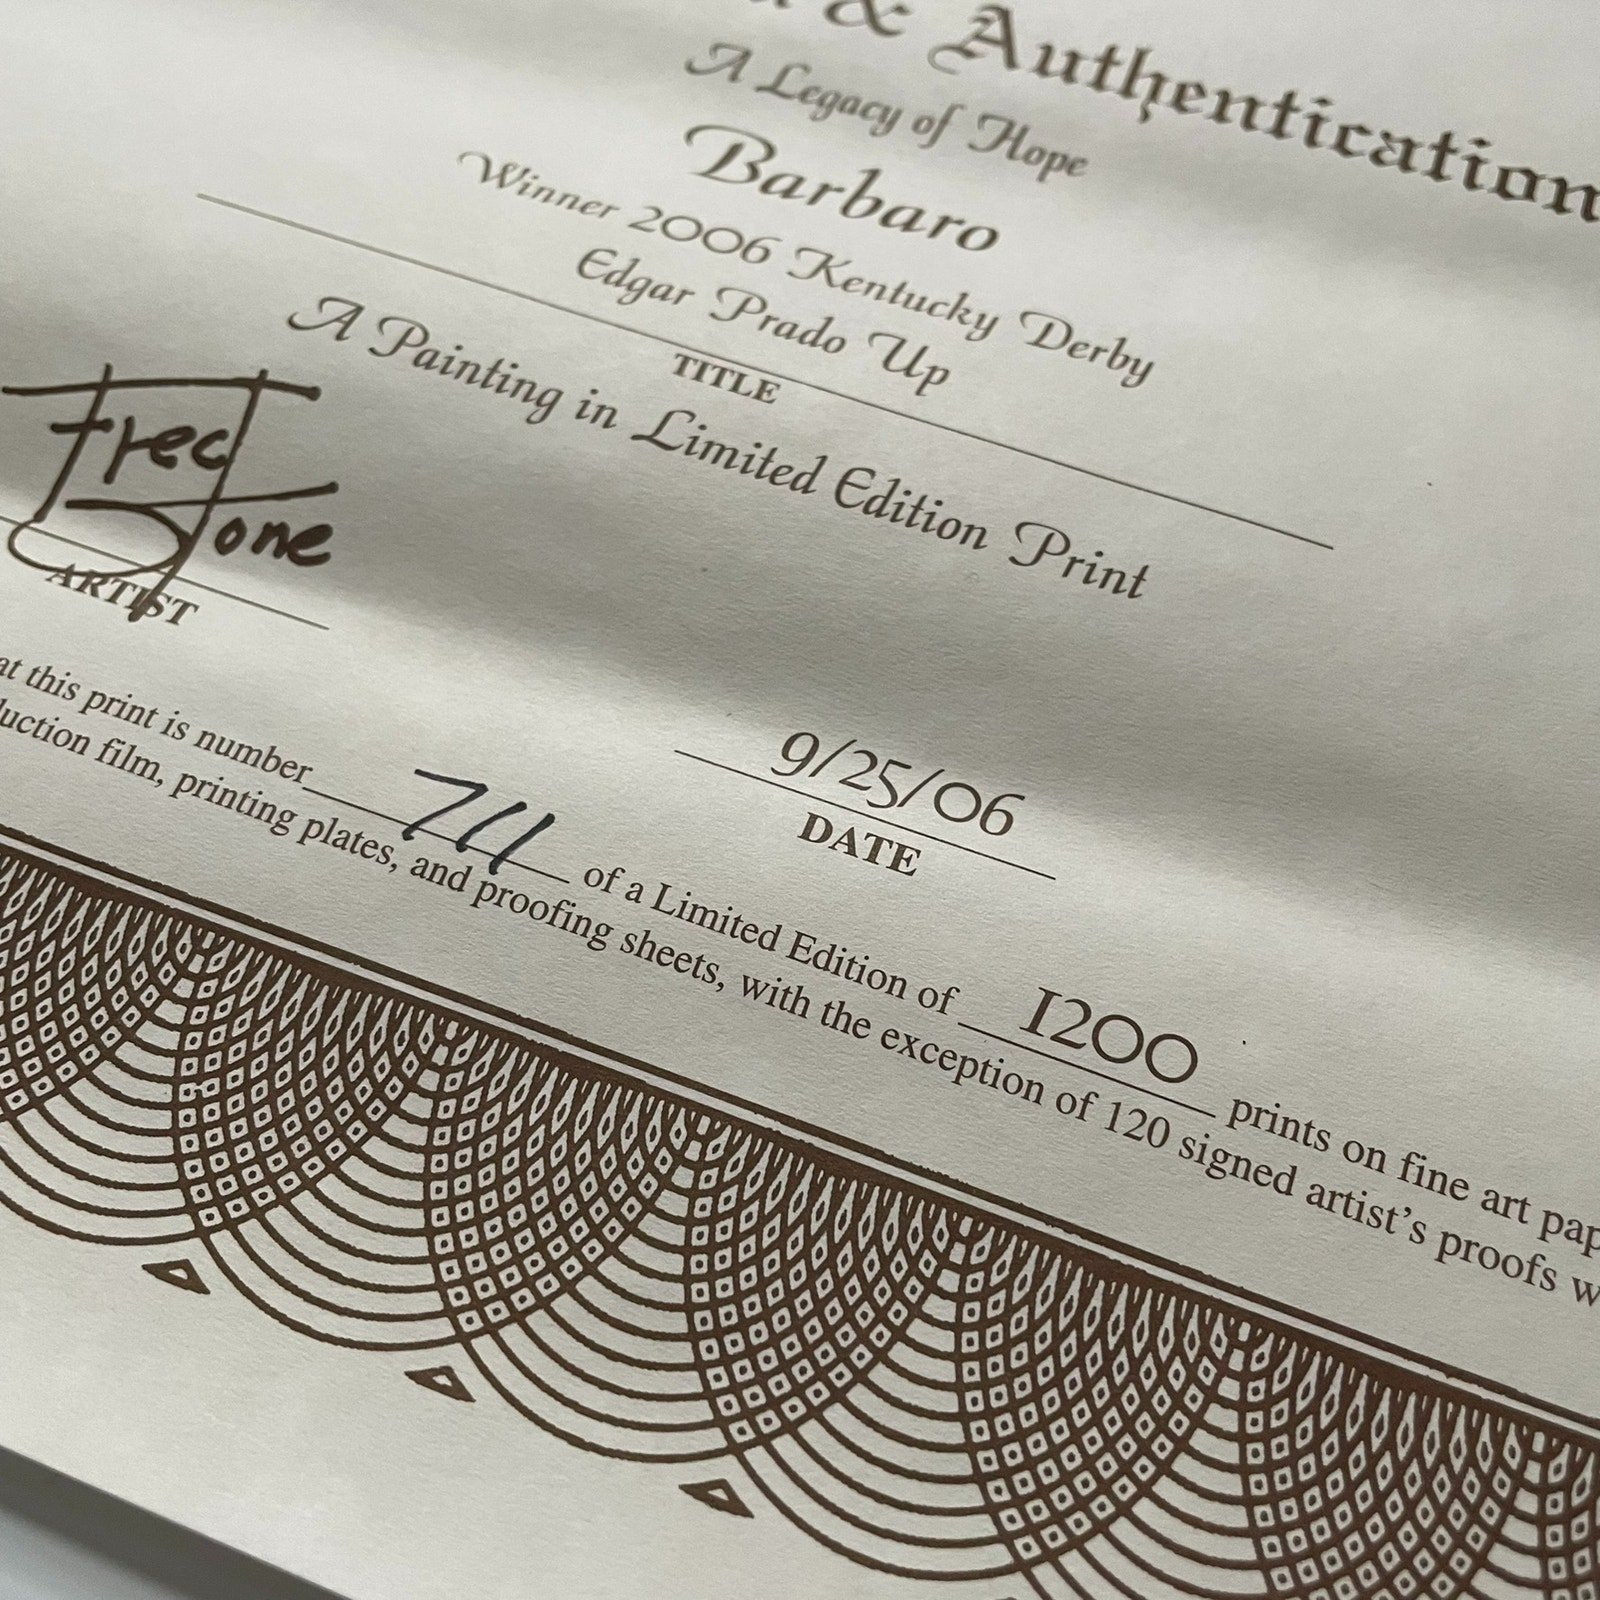 & Authentication
A Legacy of Hope
Barbaro
Winner 2006 Kentucky Derby
Edgar Prado Up
TITLE
A Painting in Limited Edition Print
Fred Stone
ARTIST
9/25/06
DATE
at this print is number 711 of a Limited Edition of 1200 prints on fine art pap
duction film, printing plates, and proofing sheets, with the exception of 120 signed artist's proofs w